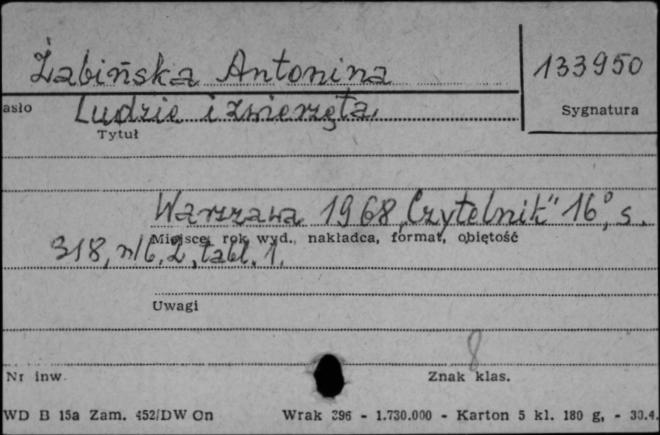 Żabińska Antonina
133950
asło
Ludzie i zwierzęta,
Sygnatura
Tytuł
Warszawa 1968, „Czytelnik" 16°, s.
Miejsce, rok wyd., nakładca, format, objętość
318, n/6, 2, tabl. 1.
Uwagi
8
Nr inw.
Znak klas.
WD B 15a Zam. 452/DW On
Wrak 396 - 1.730.000 - Karton 5 kl. 180 g, - 30.4.